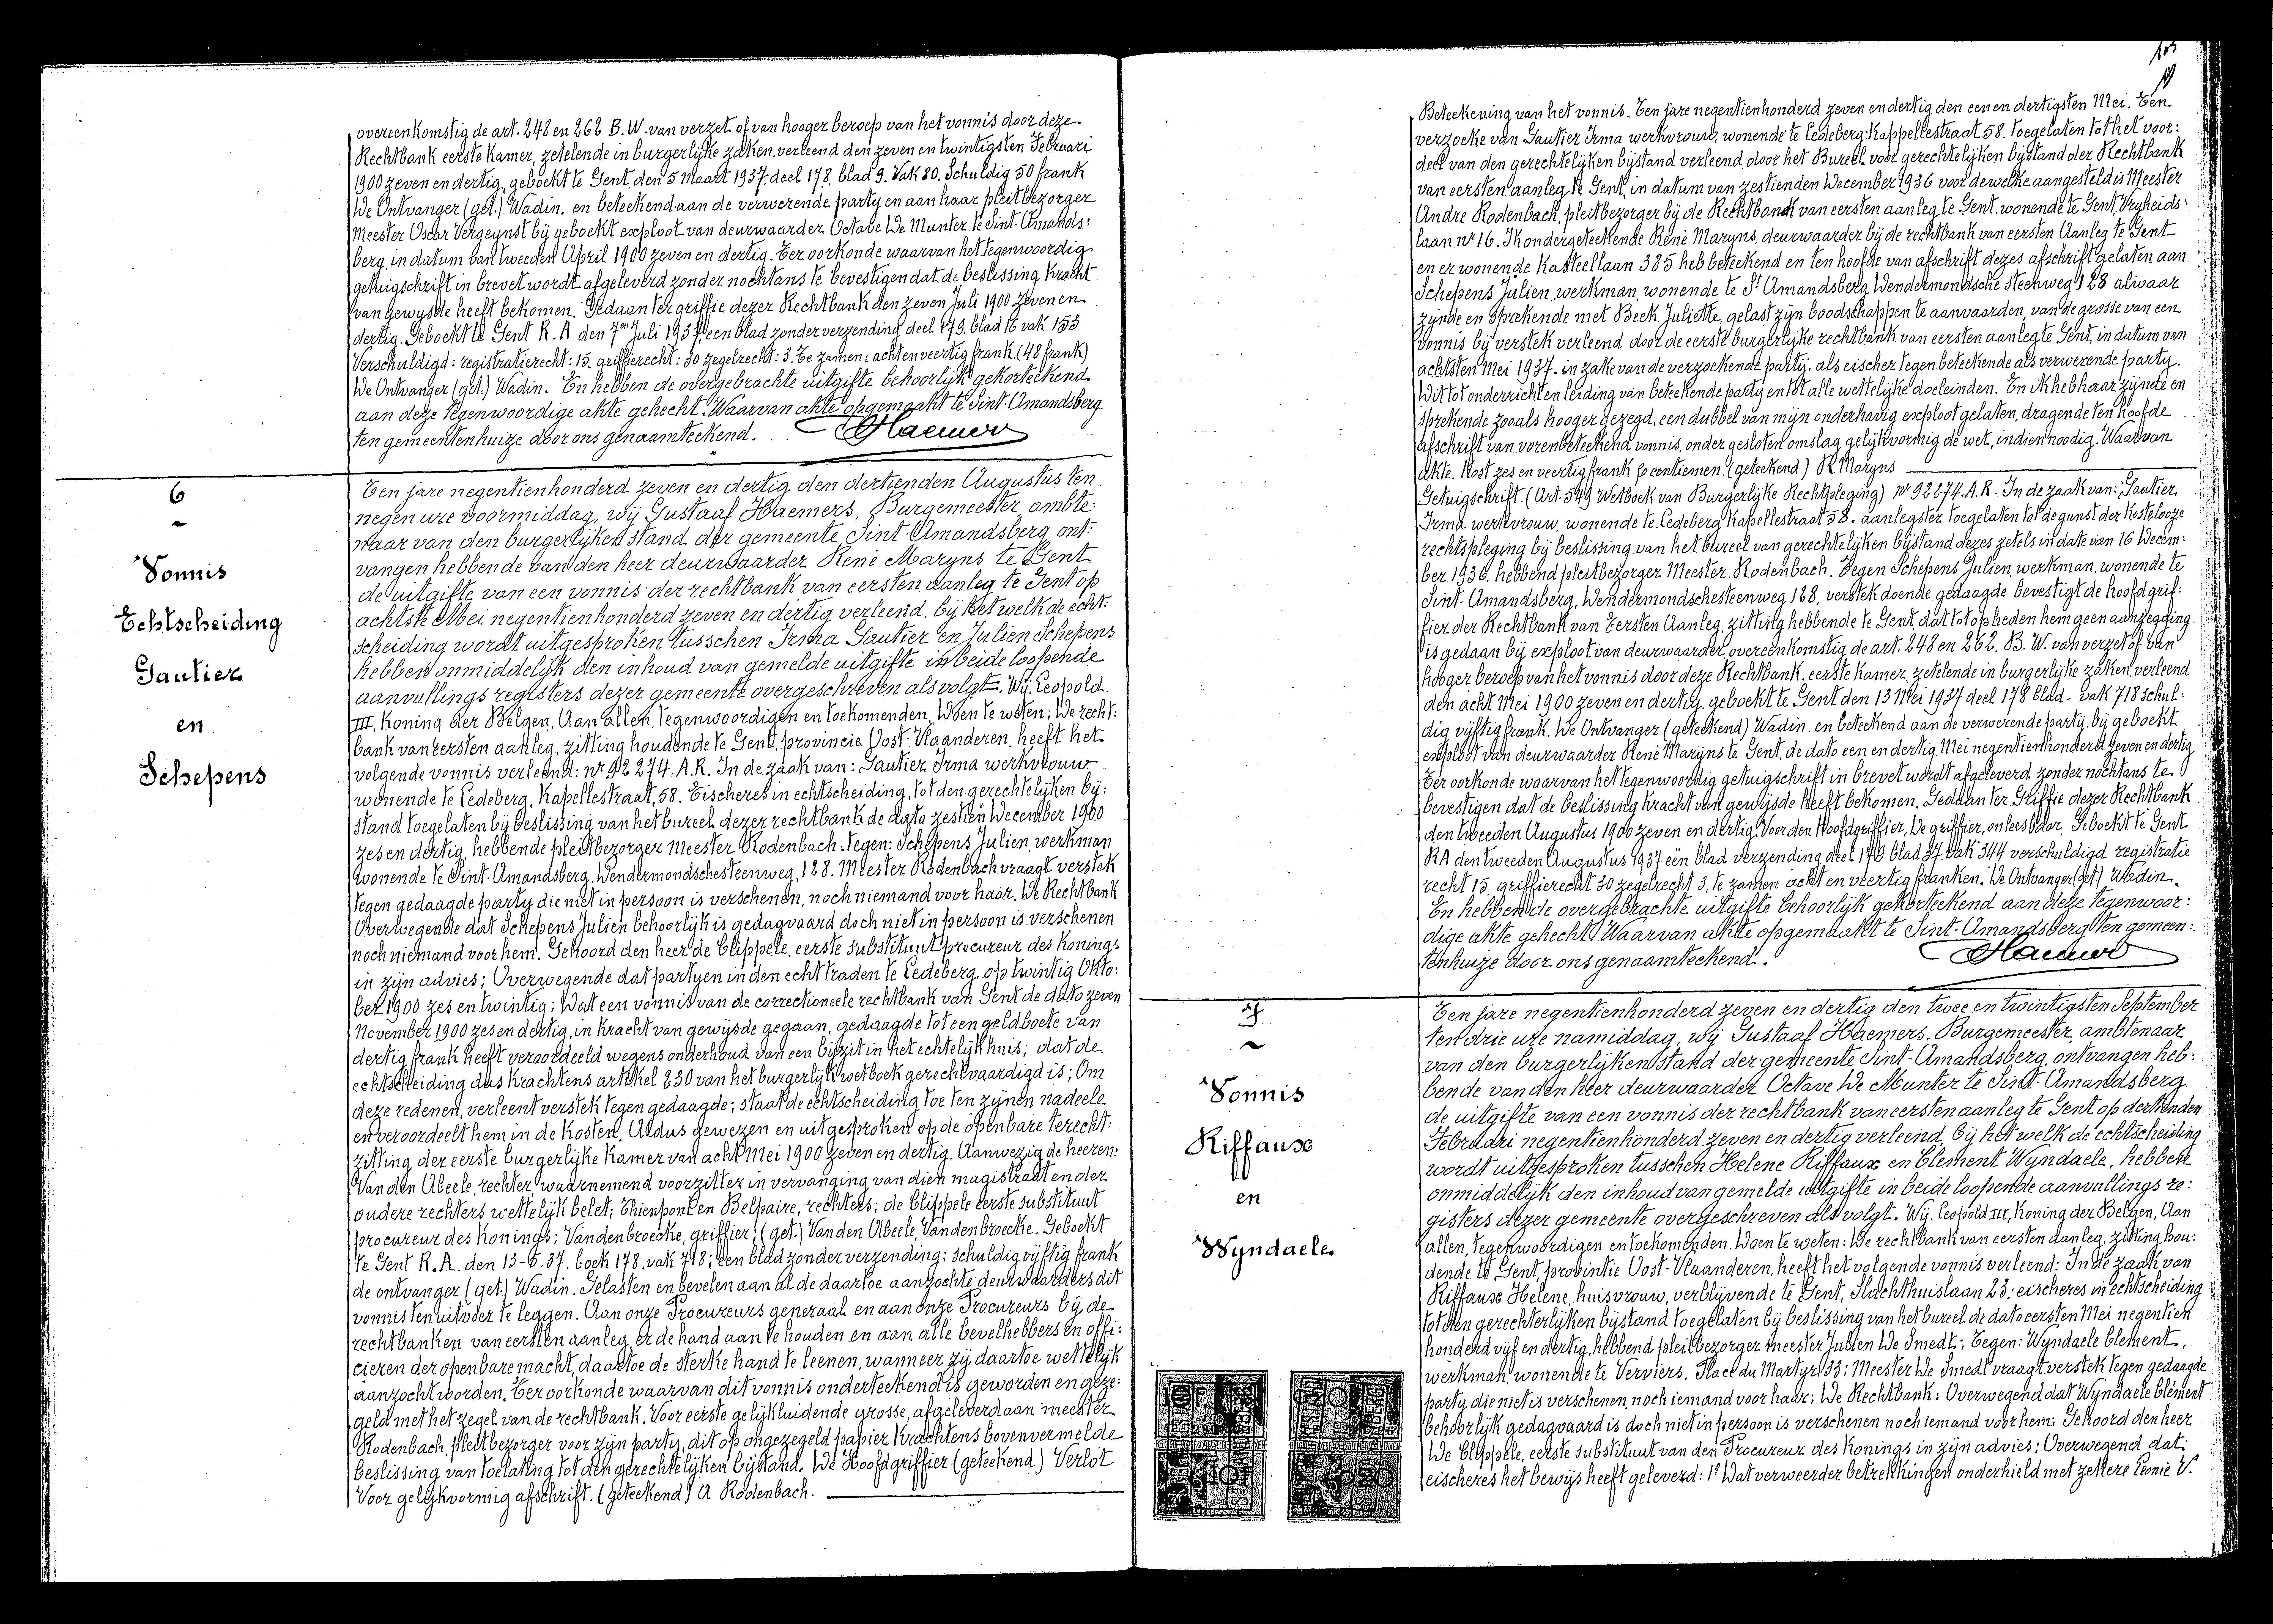 overeenkomstig de art. 248 en 262 B.W. van verzet of van hooger beroep van het vonnis door deze
Rechtbank eerste Kamer, zetelende in burgerlijke zaken, verleend den zeven en twintigsten Februari
1900 zeven en dertig, geboekt te Gent, den 5 Maart 1937. deel 178, blad 9. Vak 80. Schuldig 50 frank
De Ontvanger (get.) Wadin. en beteekend aan de verwerende party en aan haar pleitbezorger
Meester Oscar Vergeynst bij geboekt exploot van deurwaarder Octave De Munter te Sint-Amands:
berg, in datum van tweeden April 1900 zeven en dertig. Ter oorkonde waarvan het tegenwoordig
getuigschrift in brevet wordt afgeleverd zonder nochtans te bevestigen dat de beslissing kracht
van gewijsde heeft bekomen. Gedaan ter griffie dezer Rechtbank den zeven Juli 1900 zeven en
dertig. Geboekt te Gent R.A den 7en Juli 1937, een blad zonder verzending deel 179. blad 16 vak 153
Verschuldigd: registratierecht: 15. griffierecht: 30 zegelrecht: 3. Te zamen: achtenveertig frank. (48 frank)
De Ontvanger (get.) Wadin. En hebben de overgebrachte uitgifte behoorlijk gekorteekend
aan deze tegenwoordige akte gehecht. Waarvan akte opgemaakt te Sint-Amandsberg
ten gemeentenhuize door ons genaamteekend. Haemers
6
~
Vonnis
Echtscheiding
Gautier
en
Schepens
Ten jare negentienhonderd zeven en dertig den dertienden Augustus ten
negen ure voormiddag, wij Gustaaf Haemers, Burgemeester ambte:
naar van den burgerlijken stand der gemeente Sint-Amandsberg ont:
vangen hebbende van den heer deurwaarder René Maryns te Gent
de uitgifte van een vonnis der rechtbank van eersten aanleg te Gent op
achtste Mei negentienhonderd zeven en dertig verleend, bij het welk de echt:
scheiding wordt uitgesproken tusschen Irma Gautier en Julien Schepens
hebben onmiddelijk den inhoud van gemelde uitgifte in beide loopende
aanvullings registers dezer gemeente overgeschreven als volgt. Wij Leopold
III, Koning der Belgen, Aan allen, tegenwoordigen en toekomenden, Doen te weten; De recht:
bank van eersten aanleg, zitting houdende te Gent, provincie Oost-Vlaanderen, heeft het
volgende vonnis verleend: nr 92274. A.R. In de zaak van: Gautier Irma werkvrouw
wonende te Ledeberg, Kapellestraat, 58. Eischeres in echtscheiding, tot den gerechtelijken bij:
stand toegelaten bij beslissing van het bureel dezer rechtbank de dato zestien December 1900
zes en dertig, hebbende pleitbezorger Meester Rodenbach. tegen: Schepens Julien, werkman
wonende te Sint-Amandsberg, Dendermondschesteenweg, 128. Meester Rodenbach vraagt verstek
tegen gedaagde party die niet in persoon is verschenen, noch niemand voor haar. De Rechtbank
Overwegende dat Schepens Julien behoorlijk is gedagvaard doch niet in persoon is verschenen
noch niemand voor hem. Gehoord den heer de Clippele, eerste substituut procureur des Konings
in zijn advies; Overwegende dat partyen in den echt traden te Ledeberg op twintig Okto:
ber 1900 zes en twintig; Dat een vonnis van de correctioneele rechtbank van Gent de dato zeven
November 1900 zes en dertig, in kracht van gewijsde gegaan, gedaagde tot een geldboete van
dertig frank heeft veroordeeld wegens onderhoud van een bijzit in het echtelijk huis; dat de
echtscheiding dus krachtens artikel 230 van het burgerlijk wetboek gerechtvaardigd is; Om
deze redenen, verleent verstek tegen gedaagde; staat de echtscheiding toe ten zijnen nadeele
en veroordeelt hem in de kosten. Aldus gewezen en uitgesproken op de openbare terecht:
zitting der eerste burgerlijke Kamer van acht Mei 1900 zeven en dertig. Aanwezig de heeren:
Van den Abeele, rechter waarnemend voorzitter in vervanging van dien magistraat en der
oudere rechters wettelijk belet; Thienpont en Belpaire, rechters; de Clippele eerste substituut
procureur des Konings; Vandenbroecke, griffier; (get.) Vanden Abeele, Vandenbroecke. Geboekt
te Gent R.A. den 13-5-37. boek 178, vak 718; een blad zonder verzending: schuldig vijftig frank
de ontvanger (get.) Wadin. Gelasten en bevelen aan al de daartoe aanzochte deurwaarders dit
vonnis ten uitvoer te leggen. Aan onze Procureurs generaal en aan onze Procureurs bij de
rechtbanken van eersten aanleg, er de hand aan te houden en aan alle bevelhebbers en offi:
cieren der openbare macht, daartoe de sterke hand te leenen, wanneer zij daartoe wettelijk
aanzocht worden. Ter oorkonde waarvan dit vonnis onderteekend is geworden en geze:
geld met het zegel van de rechtbank. Voor eerste gelijkluidende grosse, afgeleverd aan meester
Rodenbach, pleitbezorger voor zijn party, dit op ongezegeld papier krachtens bovenvermelde
beslissing van toelating tot den gerechtelijken bijstand. De Hoofdgriffier (geteekend) Verlot
Voor gelijkvormig afschrift. (geteekend) A Rodenbach.
Beteekening van het vonnis. Ten jare negentienhonderd zeven en dertig den een en dertigsten Mei. Ten
verzoeke van Gautier Irma werkvrouw, wonende te Ledeberg-Kappellestraat 58. toegelaten tot het voor:
deel van den gerechtelijken bijstand verleend door het Bureel voor gerechtelijken bijstand der Rechtbank
van eersten aanleg te Gent, in datum van zestienden December 1936 voor dewelke aangesteld is Meester
Andre Rodenbach, pleitbezorger bij de Rechtbank van eersten aanleg te Gent, wonende te Gent, Vrijheids:
laan nr 16. Ik ondergeteekende René Maryns, deurwaarder bij de rechtbank van eersten Aanleg te Gent
en er wonende Kasteellaan 385 heb beteekend en ten hoofde van afschrift dezes afschrift gelaten aan
Schepens Julien, werkman, wonende te St Amandsberg, Dendermondsche steenweg 128 alwaar
zijnde en sprekende met Beek Juliette, gelast zijn boodschappen te aanvaarden, van de grosse van een
vonnis bij verstek verleend door de eerste burgerlijke rechtbank van eersten aanleg te Gent, in datum van
achtsten Mei 1937. in zake van de verzoekende partij, als eischer tegen beteekende als verwerende party.
Dit tot onderricht en leiding van beteekende party en tot alle wettelijke doeleinden. En ik heb haar zijnde en
sprekende zooals hooger gezegd, een dubbel van mijn onderhavig exploot gelaten, dragende ten hoofde
afschrift van vorenbeteekend vonnis, onder gesloten omslag, gelijkvormig de wet, indien noodig. Waarvan
akte. Kost zes en veertig frank 50 centiemen. (geteekend) R Maryns
Getuigschrift. (Art. 549 Wetboek van Burgerlijke Rechtpleging) nr 92274. A.R. In de zaak van: Gautier
Irma werkvrouw, wonende te Ledeberg Kapellestraat 58. aanlegster toegelaten tot de gunst der Kostelooze
rechtspleging bij beslissing van het bureel van gerechtelijken bijstand dezes zetels in date van 16 Decem:
ber 1936, hebbend pleitbezorger Meester Rodenbach. Tegen Schepens Julien, werkman, wonende te
Sint-Amandsberg, Dendermondschesteenweg 128, verstek doende gedaagde bevestigt de hoofdgrif:
fier der Rechtbank van Eersten Aanleg, zitting hebbende te Gent, dat tot op heden hem geen aanzegging
is gedaan bij exploot van deurwaarder, overeenkomstig de art. 248 en 262. B.W. van verzet of van
hooger beroep van het vonnis door deze Rechtbank, eerste Kamer, zetelende in burgerlijke zaken, verleend
den acht Mei 1900 zeven en dertig, geboekt te Gent den 13 Mei 1937 deel 178 blad - vak 718 schul:
dig vijftig frank. De Ontvanger (geteekend) Wadin. en beteekend aan de verwerende party, bij geboekt
exploot van deurwaarder René Marijns te Gent, de dato een en dertig Mei negentienhonderd zeven en dertig
Ter oorkonde waarvan het tegenwoordig getuigschrift in brevet wordt afgeleverd zonder nochtans te
bevestigen dat de beslissing kracht van gewijsde heeft bekomen. Gedaan ter Griffie dezer Rechtbank
den tweeden Augustus 1900 zeven en dertig. Voor den Hoofdgriffier, De griffier, onleesbaar. Geboekt te Gent
RA den tweeden Augustus 1937 een blad verzending deel 179 blad 37 vak 344 verschuldigd registratie
recht 15, griffierecht 30 zegelrecht 3, te zamen acht en veertig franken. De Ontvanger (get) Wadin.
En hebben de overgebrachte uitgifte behoorlijk gekorteekend aan deze tegenwoor:
dige akte gehecht. Waarvan akte opgemaakt te Sint-Amandsberg ten gemeen:
tenhuize door ons genaamteekend. Haemers
7
~
Vonnis
Riffaux
en
Wyndaele
Ten jare negentienhonderd zeven en dertig den twee en twintigsten September
ten drie ure namiddag, wij Gustaaf Haemers, Burgemeester, ambtenaar
van den burgerlijken stand der gemeente Sint-Amandsberg, ontvangen heb:
bende van den heer deurwaarder Octave De Munter te Sint-Amandsberg
de uitgifte van een vonnis der rechtbank van eersten aanleg te Gent op dertienden
Februari negentienhonderd zeven en dertig verleend, bij het welk de echtscheiding
wordt uitgesproken tusschen Helene Riffaux en Clement Wyndaele, hebben
onmiddelijk den inhoud van gemelde uitgifte in beide loopende aanvullings re:
gisters dezer gemeente overgeschreven als volgt. Wij Leopold III, Koning der Belgen, Aan
allen, tegenwoordigen en toekomenden. Doen te weten: De rechtbank van eersten aanleg, zitting hou:
dende te Gent, provintie Oost-Vlaanderen, heeft het volgende vonnis verleend: In de zaak van
Riffaux Helene, huisvrouw, verblijvende te Gent, Slachthuislaan 23: eischeres in echtscheiding
tot den gerechterlijken bijstand toegelaten bij beslissing van het bureel de dato eersten Mei negentien
honderd vijf en dertig, hebbend pleitbezorger meester Julien De Smedt; Tegen: Wyndaele Clement,
werkman, wonende te Verviers, Place du Martyr 33: Meester De Smedt vraagt verstek tegen gedaagde
party, die niet is verschenen, noch iemand voor haar; De Rechtbank: Overwegend dat Wyndaele Clément
behoorlijk gedagvaard is doch niet in persoon is verschenen noch iemand voor hem: Gehoord den heer
De Clippele, eerste substituut van den Procureur des Konings in zijn advies; Overwegend dat:
eischeres het bewijs heeft geleverd: 1° Dat verweerder betrekkingen onderhield met zekere Leonie V.